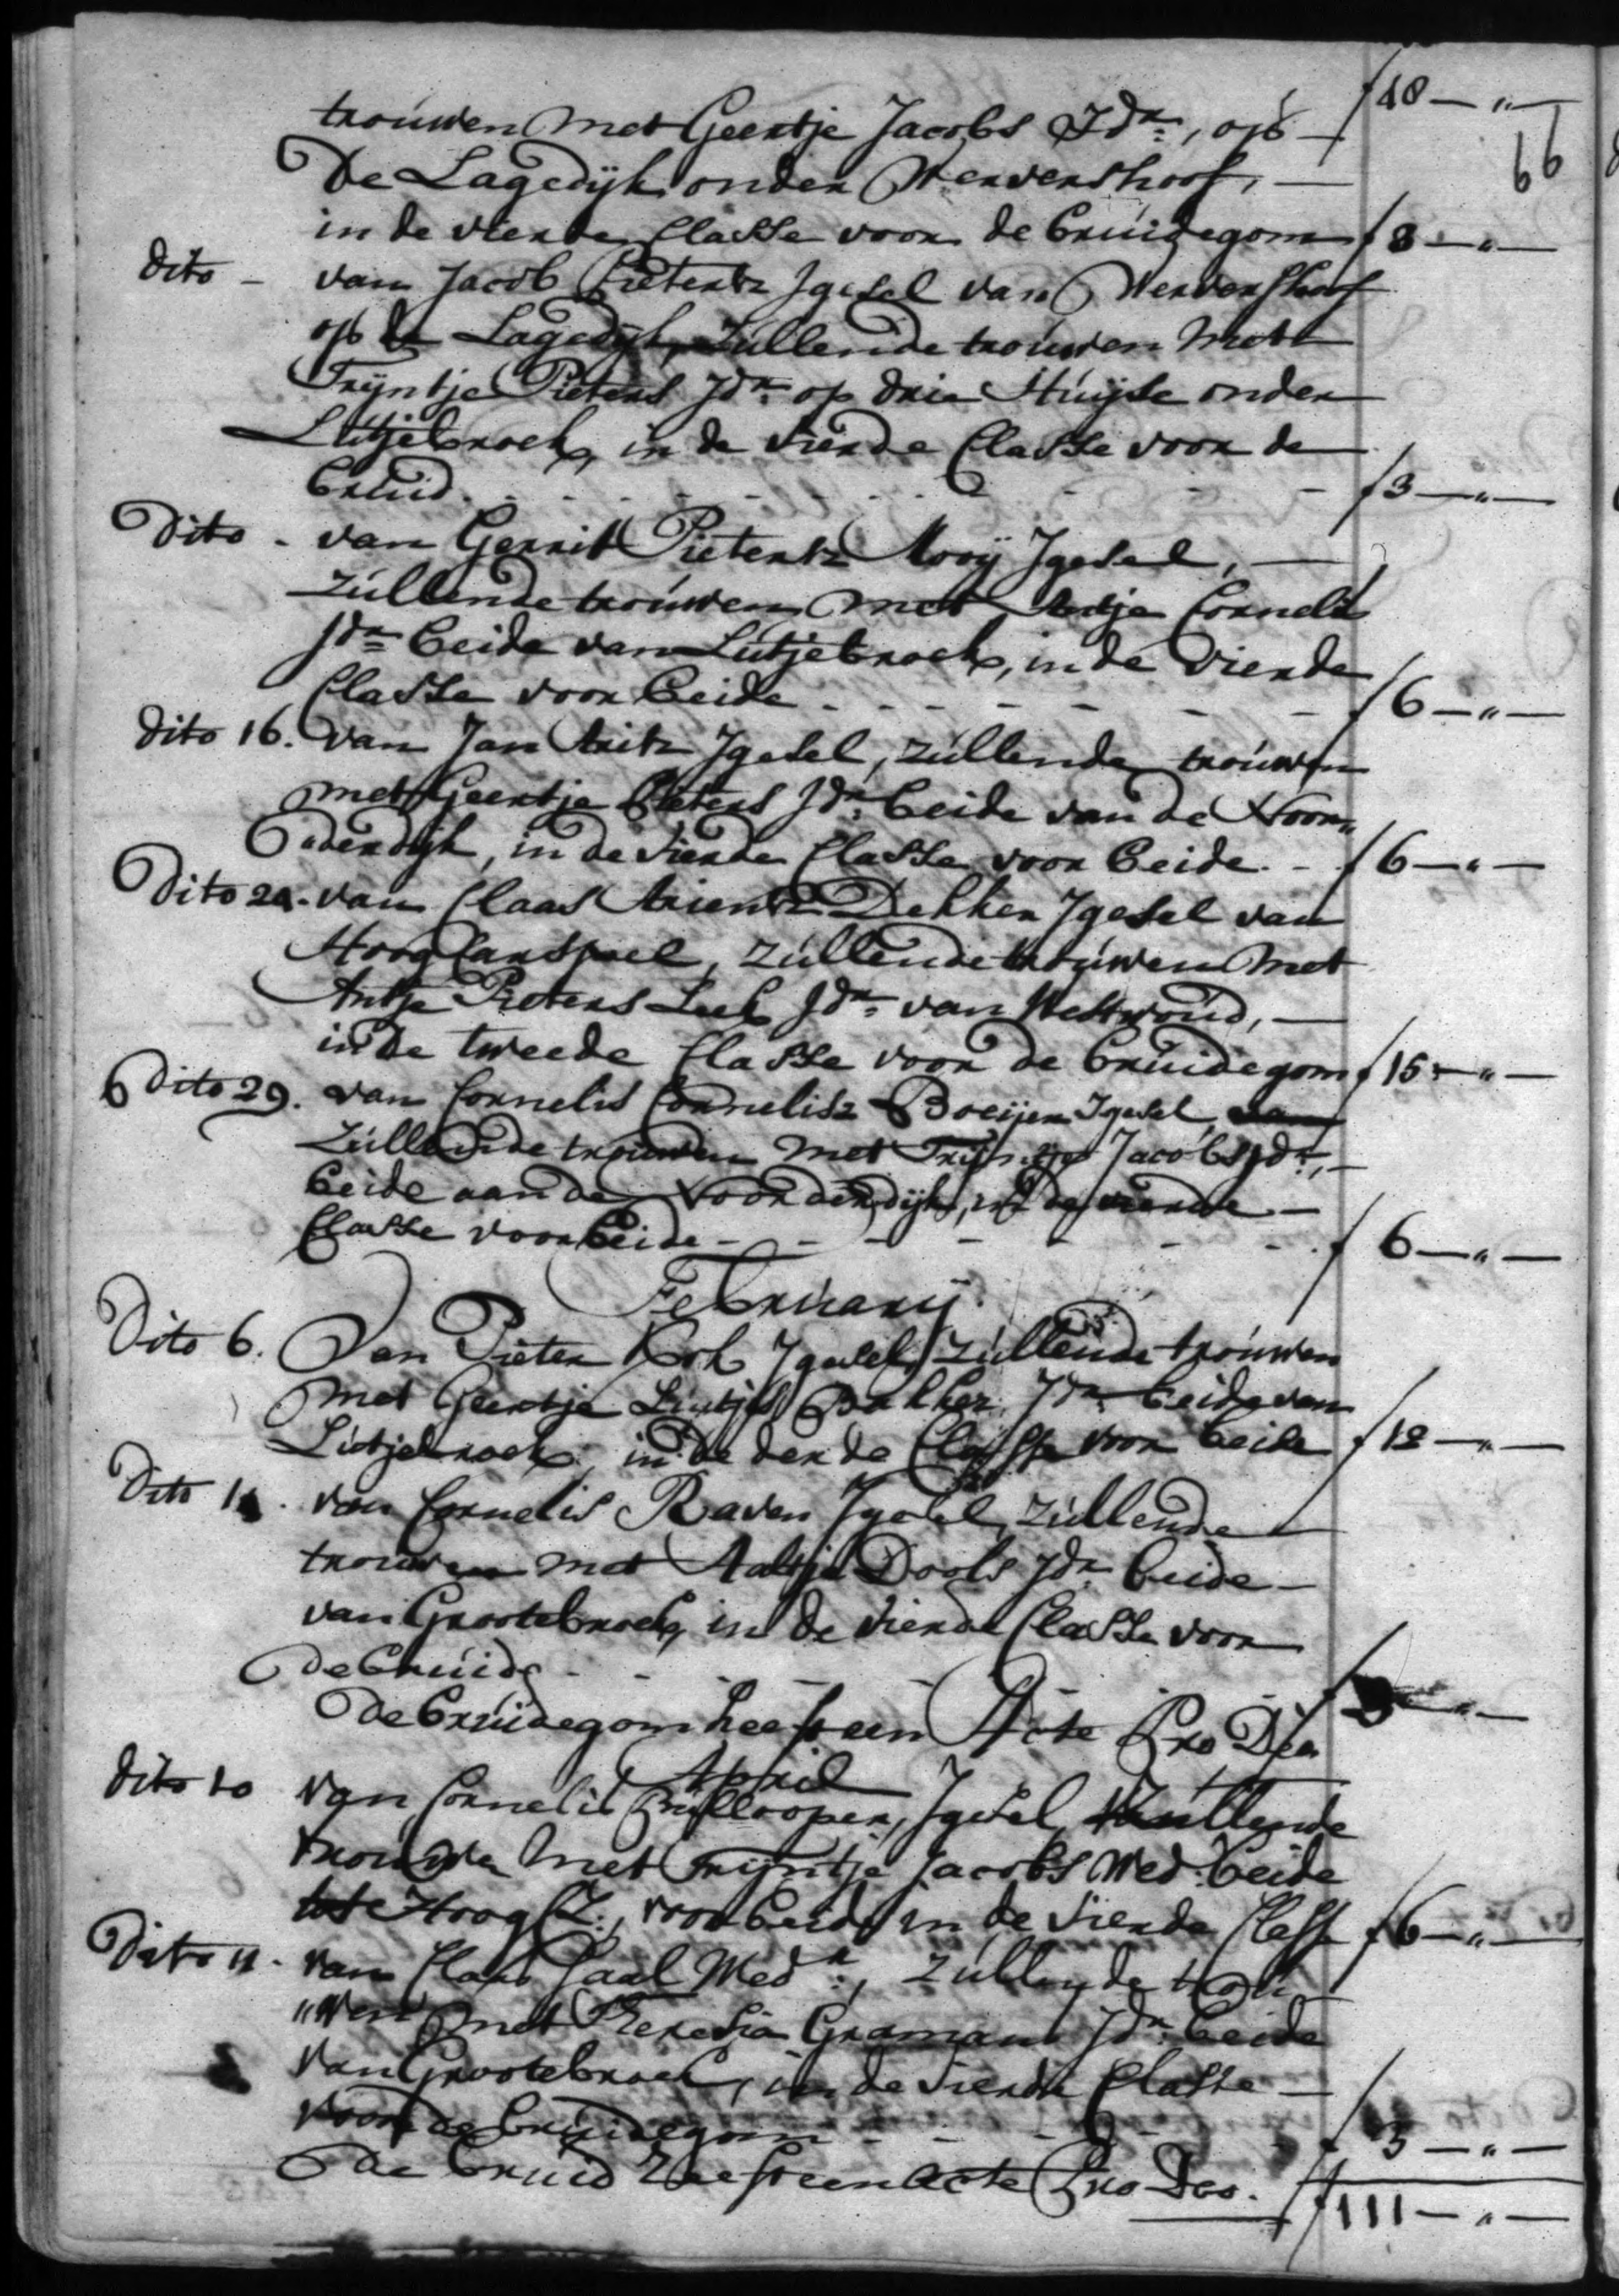 ƒ 48 — " —
66
trouwen met Geertje Jacobs Jdr:, op —
De Lagedijk onder Wervershoof, —
in de vierde Classe voor de bruidegom ƒ 3 — " —
dito – van Jacob Pietersz Jgesel van Wervershoof
op de Lagedijk, zullende trouwen met
Trijntje Pieters Jdr: op drie Huijse onder
Lutjebroek, in de vierde Classe voor de
bruid - - - - - - ƒ 3 — " —
Dito - van Gerrit Pietersz Mooij Jgesel, —
zullende trouwen met Antje Cornelis
Jdr: beide van Lutjebroek, in de vierde
Classe voor beide - - - - - - ƒ 6 — " —
dito 16. van Jan Aritz Jgesel, zullende trouwen
met Geertje Pieters Jdr: beide van de Noor„
„derdijk, in de vierde Classe voor beide - - ƒ 6 — " —
Dito 20. van Claas Ariensz Dekker Jgesel van
Hoogcarspel, zullende trouwen met
Antje Pieters Leek Jdr: van Westwoud, —
in de tweede Classe voor de bruidegom ƒ 15 — " —
Dito 29. van Cornelis Cornelisz Boeijer Jgesel,
zullende trouwen met Trijntje Jacobs Jdr:, —
beide aan de Noorderdijk, in de vierde —
Classe voor beide - - - - - - ƒ 6 — " —
Februarij
Dito 6. Van Pieter Kok Jgesel, zullende trouwen
met Geertje Luitjes Bakker Jdr: beide van
Lutjebroek, in de derde Classe voor beide ƒ 12 — " —
Dito van Cornelis Raven Jgesel, zullende
trouwen met Aaltje Dools Jdr: beide —
van Grootebroek, in de vierde Classe voor
de bruid - - - - - - ƒ 3 — " —
De bruidegom heeft een Acte Pro Deo
April
dito 10 van Cornelis Jgesel, zullende
trouwen met Trijntje Jacobs Wed: beide
te Hoog C:, voor beide in de vierde Classe ƒ 6 — " —
Dito 11. van Claas Saal Wedr:, zullende trou„
„wen met Teresia Gramans Jdr: beide
van Grootebroek, in de vierde Classe —
voor de bruidegom - - - - - ƒ 3 — " —
De bruid heeft een Acte Pro Deo.
ƒ 111 — " —